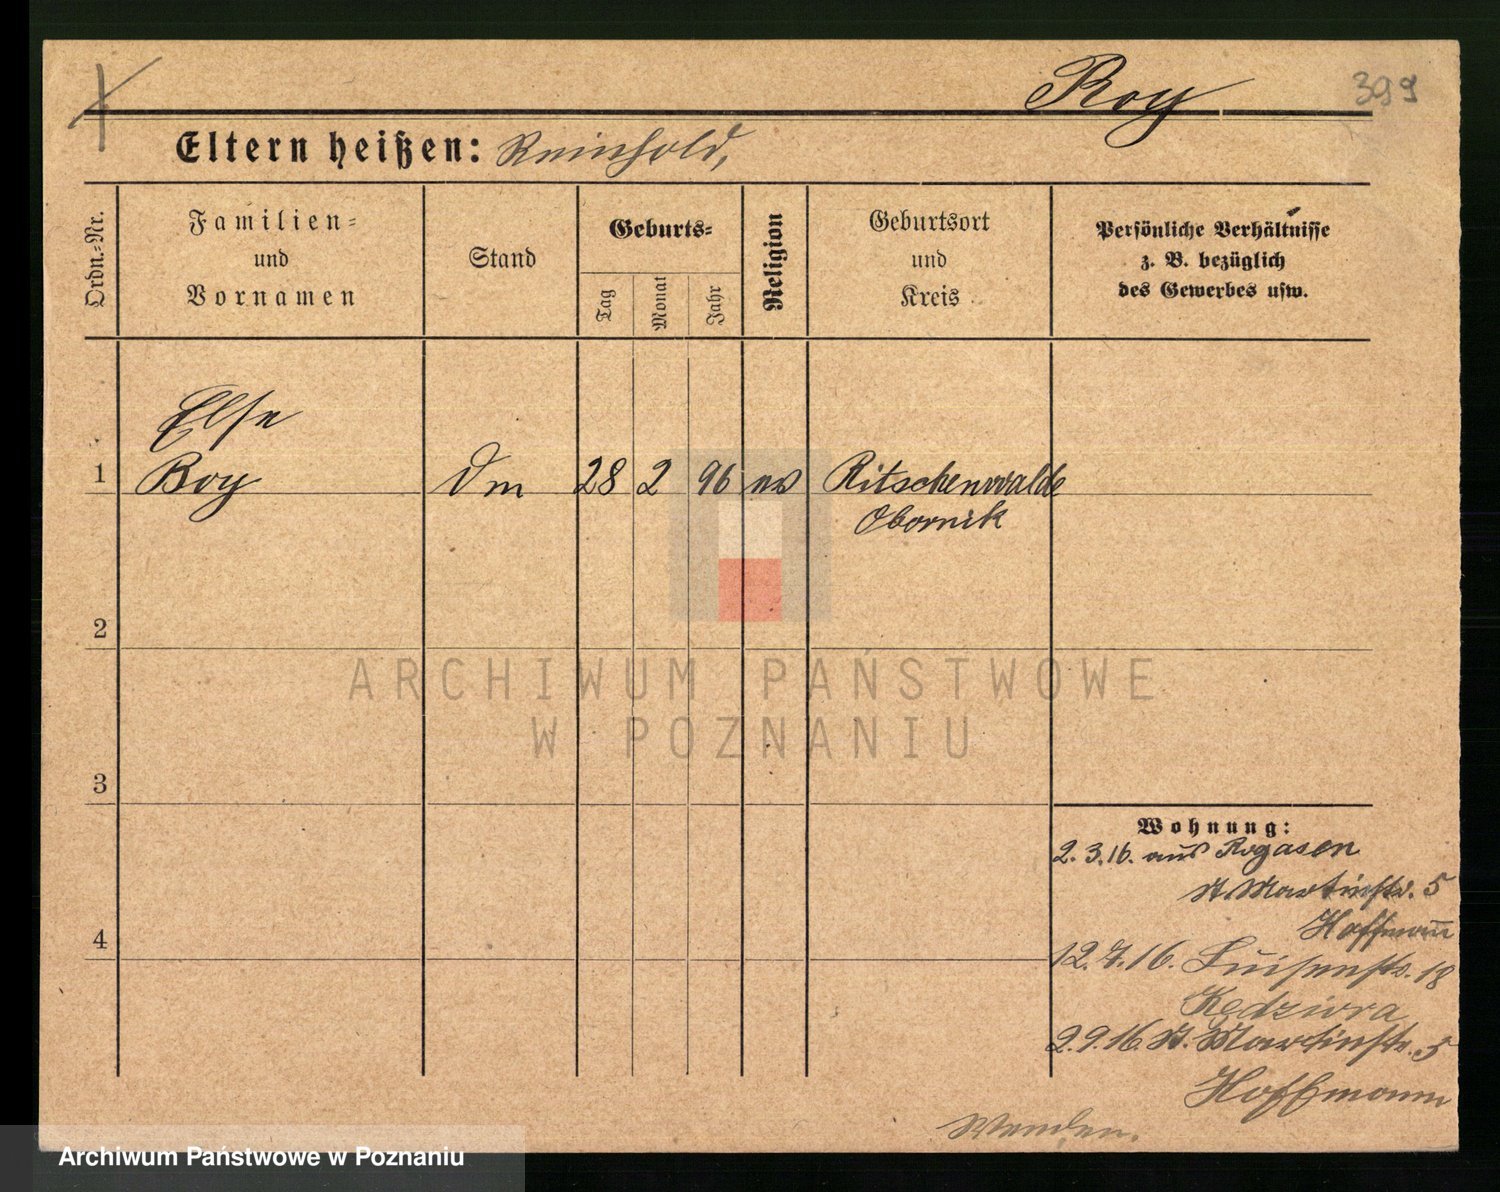 Roy
399
Eltern heißen: Reinhold,
Ordn.-Nr.
Familien-
und
Vornamen
Stand
Geburts-
Tag
Monat
Jahr
Religion
Geburtsort
und
Kreis
Persönliche Verhältnisse
z. B. bezüglich
des Gewerbes usw.
Else
1 Roy Dm 28 2 96 ev Ritschenwalde
Obornik
2
3
4
Wohnung:
2.3.16. aus Rogasen
St. Martinstr. 5
Hoffmann
12.7.16. Luisenstr. 18
Kędziora
2.9.16. St. Martinstr. 5
Hoffmann
Wenden.
ARCHIWUM PAŃSTWOWE
W POZNANIU
Archiwum Państwowe w Poznaniu